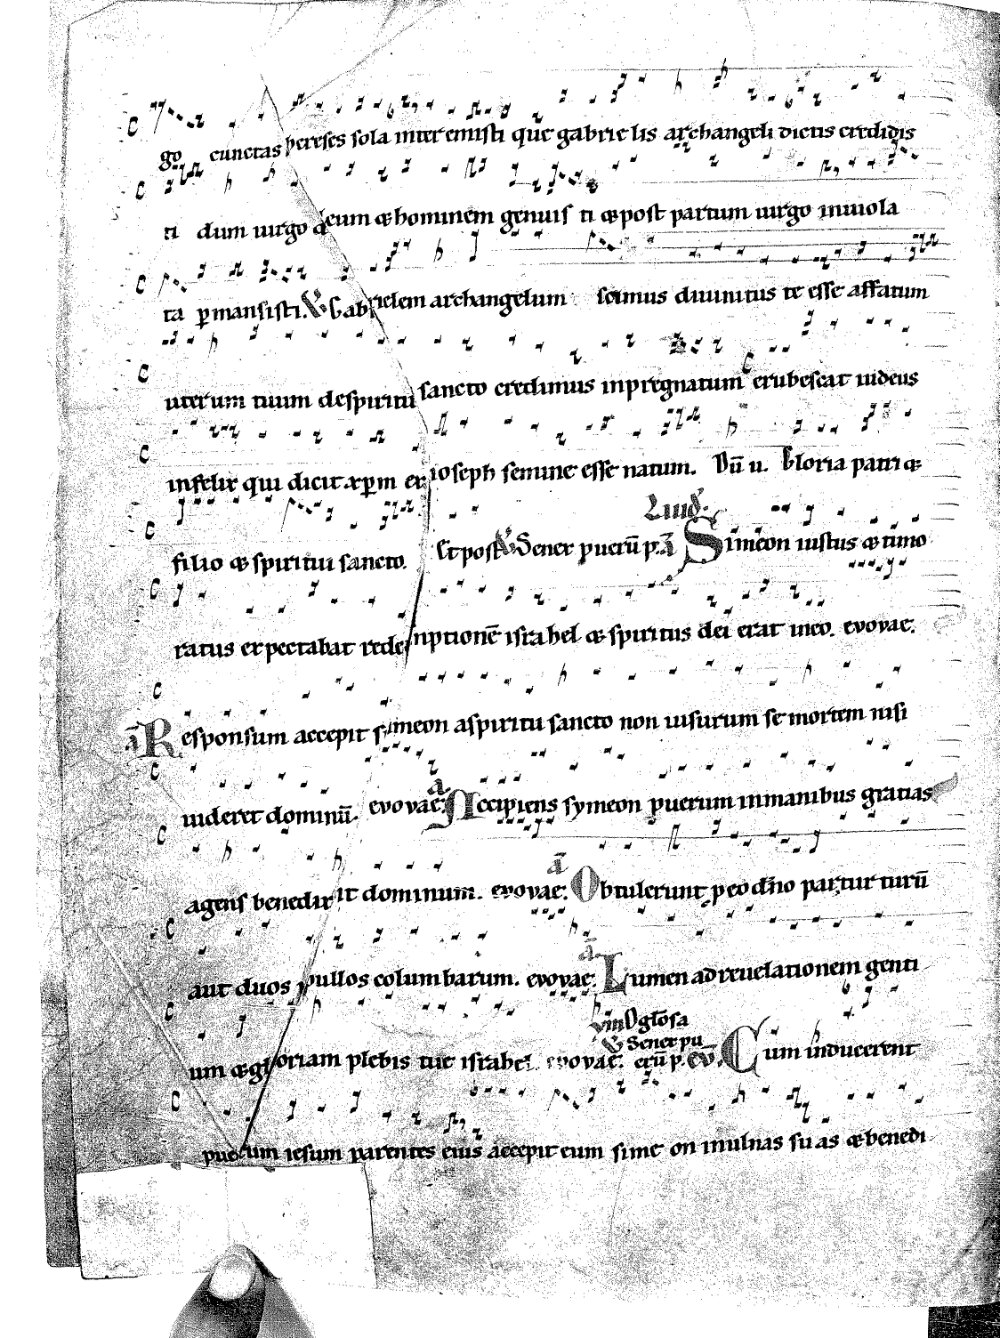 go cunctas hereses sola interemisti que gabrie lis archangeli dictis credidis
ti dum uirgo deum & hominem genuis ti & post partum uirgo inuiola
ta p̱mansisti. V̕ Gabrielem archangelum scimus diuinitus te esse affatum
uterum tuum despiritu sancto credimus inpregnatum erubescat iudeus
infelix qui dicit xp̱m ex ioseph semine esse natum. Dū u. Gloria patri &
filio & spiritui sancto.
Laud̕.
Et post V̕ Senex puerū p. ā Simeon iustus & timo
ratus expectabat redemptionē israhel & spiritus dei erat ineo. evovae.
ā Responsum accepit simeon aspiritu sancto non uisurum se mortem nisi
uideret dominū. evovae. a Accipiens symeon puerum inmanibus gratias
agens benedixit dominum. evovae. ā Obtulerunt p̱ eo dn̄o par turturū
aut duos pullos columbarum. evovae. ā Lumen adreuelationem genti
um & gloriam plebis tue israhel. evovae.
V̕ Senex pu
erū p. ev̄. Cum inducerent
puerum iesum parentes eius accepit eum sime on inulnas su as & benedi